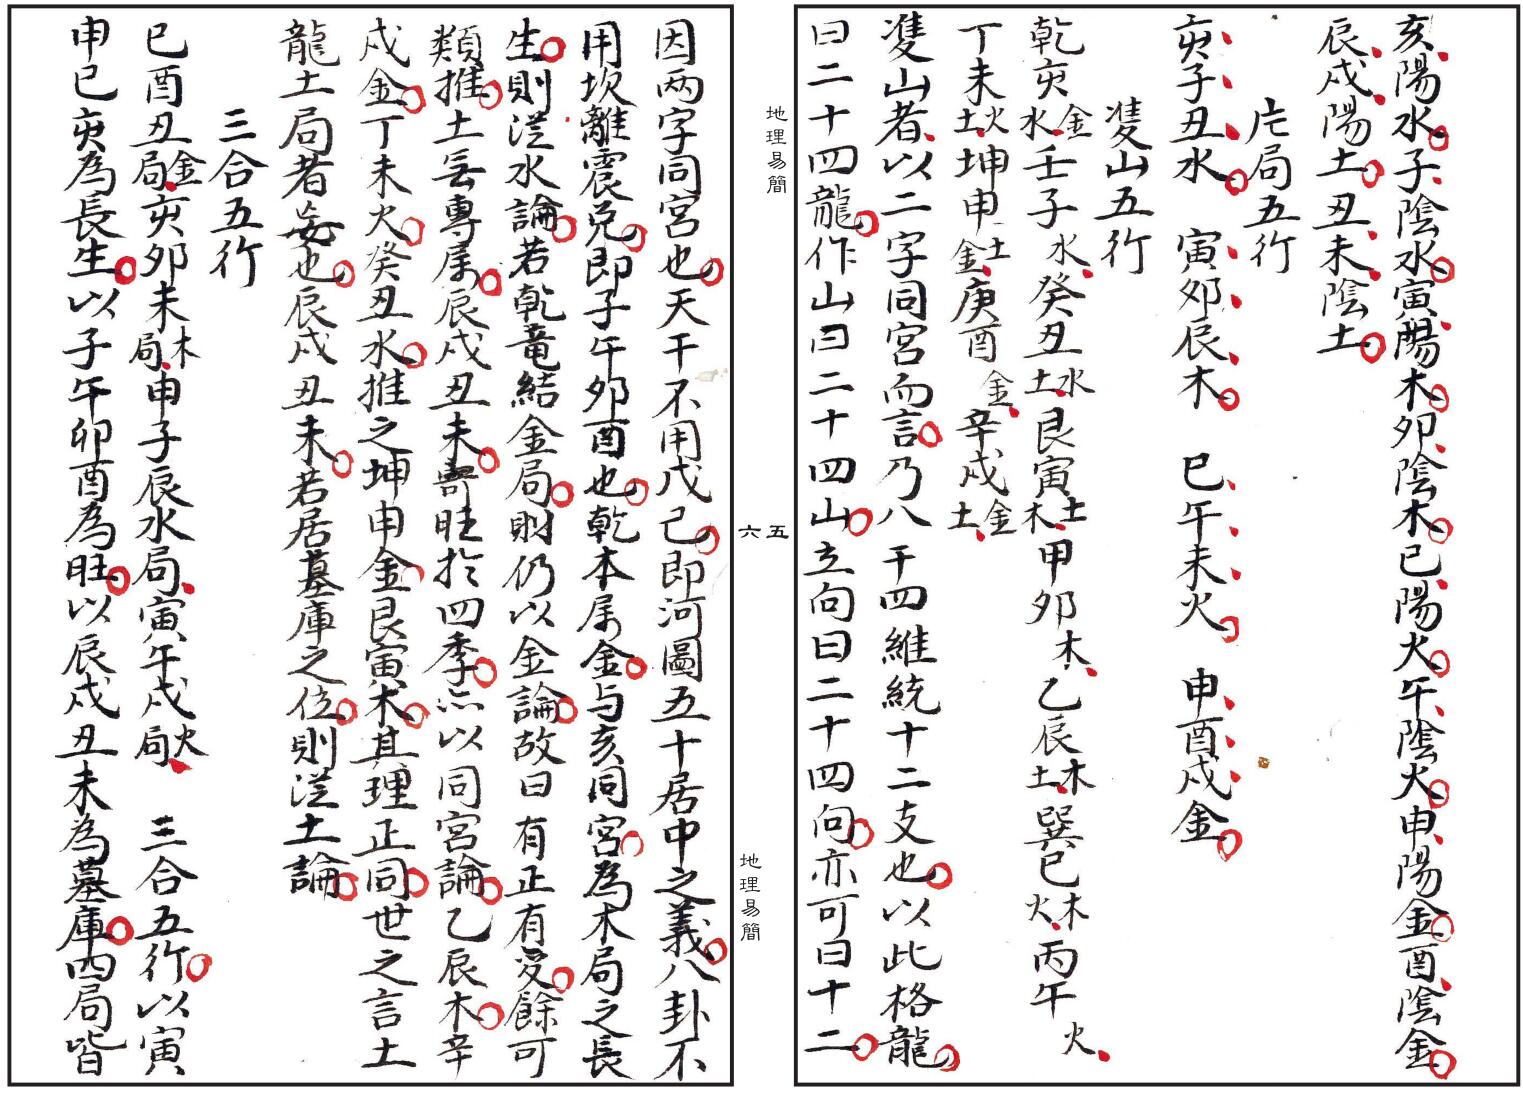 亥陽水子陰水寅陽木卯陰木巳陽火午陰火申陽金酉陰金
辰戌陽土丑未陰土
片局五行
亥子丑水 寅卯辰木 巳午未火 申酉戌金
雙山五行
乾亥金水壬子水癸丑水土艮寅土木甲卯木乙辰木土巽巳木火丙午火
丁未火土坤申土金庚酉金辛戌金土
雙山者以二字同宮而言乃八干四維統十二支也以此格龍
曰二十四龍作山曰二十四山立向曰二十四向亦可曰十二
地理易簡
五
六
地理易簡
因兩字同宮也天干不用戊己即河圖五十居中之義八卦不
用坎離震兌即子午卯酉也乾本屬金与亥同宮為木局之長
生則從水論若乾竜結金局則仍以金論故曰有正有变餘可
類推土無專属辰戌丑未寄旺於四季亦以同宮論乙辰木辛
戌金丁未火癸丑水推之坤申金艮寅木其理正同世之言土
龍土局者妄也辰戌丑未若居墓庫之位則從土論
三合五行
巳酉丑金局亥卯未木局申子辰水局寅午戌火局 三合五行以寅
申巳亥為長生以子午卯酉為旺以辰戌丑未為墓庫四局皆